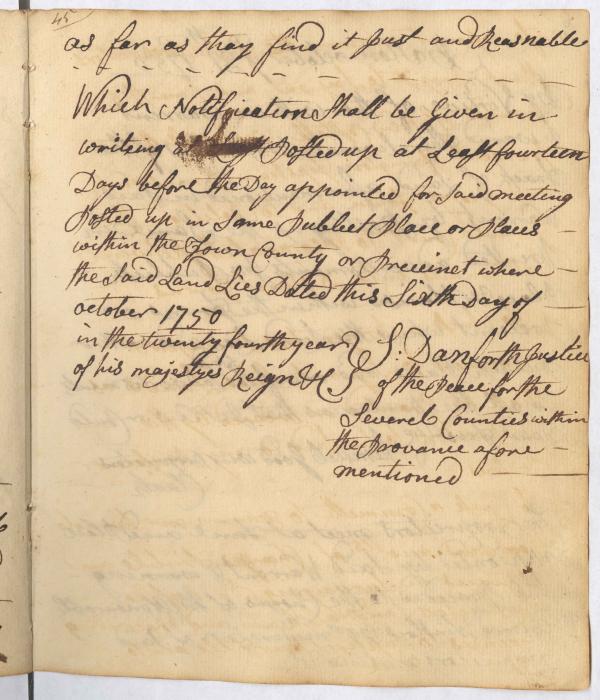 45
as far as thay find it Just and Reasnable
Which Notifycation Shall be Given in
writeing at Posted up at Least fourteen
Days before the Day appointed for Said meeting
Posted up in Some Publict Place or Places
within the Town County or Precinct where
the Said Land Lies Dated this Sixth Day of
october 1750
in the twenty fourth year
of his majestyes Reign &C
S: Danforth Justice
of the Peace for the
Severel Counties within
the Provance afore
mentioned